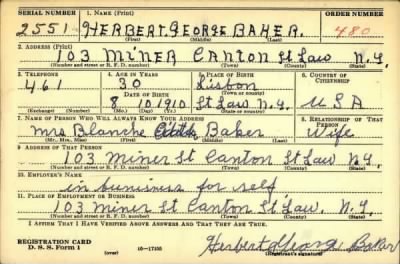 SERIAL NUMBER 1. NAME (Print) ORDER NUMBER
2551 HERBERT GEORGE BAKER. 480
(First) (Middle) (Last)
2. ADDRESS (Print)
103 MINER CANTON St Law N.Y.
(Number and street or R. F. D. number) (Town) (County) (State)
3. TELEPHONE 4. AGE IN YEARS 5. PLACE OF BIRTH 6. COUNTRY OF CITIZENSHIP
461 30 Lisbon
DATE OF BIRTH (Town or county)
8 10 1910 St Law N.Y. USA
(Exchange) (Number) (Mo.) (Day) (Yr.) (State or country)
7. NAME OF PERSON WHO WILL ALWAYS KNOW YOUR ADDRESS 8. RELATIONSHIP OF THAT PERSON
Mrs Blanche Baker Wife
(Mr., Mrs., Miss) (First) (Middle) (Last)
9. ADDRESS OF THAT PERSON
103 Miner St Canton St Law N.Y.
(Number and street or R. F. D. number) (Town) (County) (State)
10. EMPLOYER'S NAME
in bunisness for self
11. PLACE OF EMPLOYMENT OR BUSINESS
103 miner St Canton St Law. N.Y.
(Number and street or R. F. D. number) (Town) (County) (State)
I AFFIRM THAT I HAVE VERIFIED ABOVE ANSWERS AND THAT THEY ARE TRUE.
REGISTRATION CARD
D. S. S. Form 1 (over) 16-17105 Herbert George Baker
(Registrant's signature)